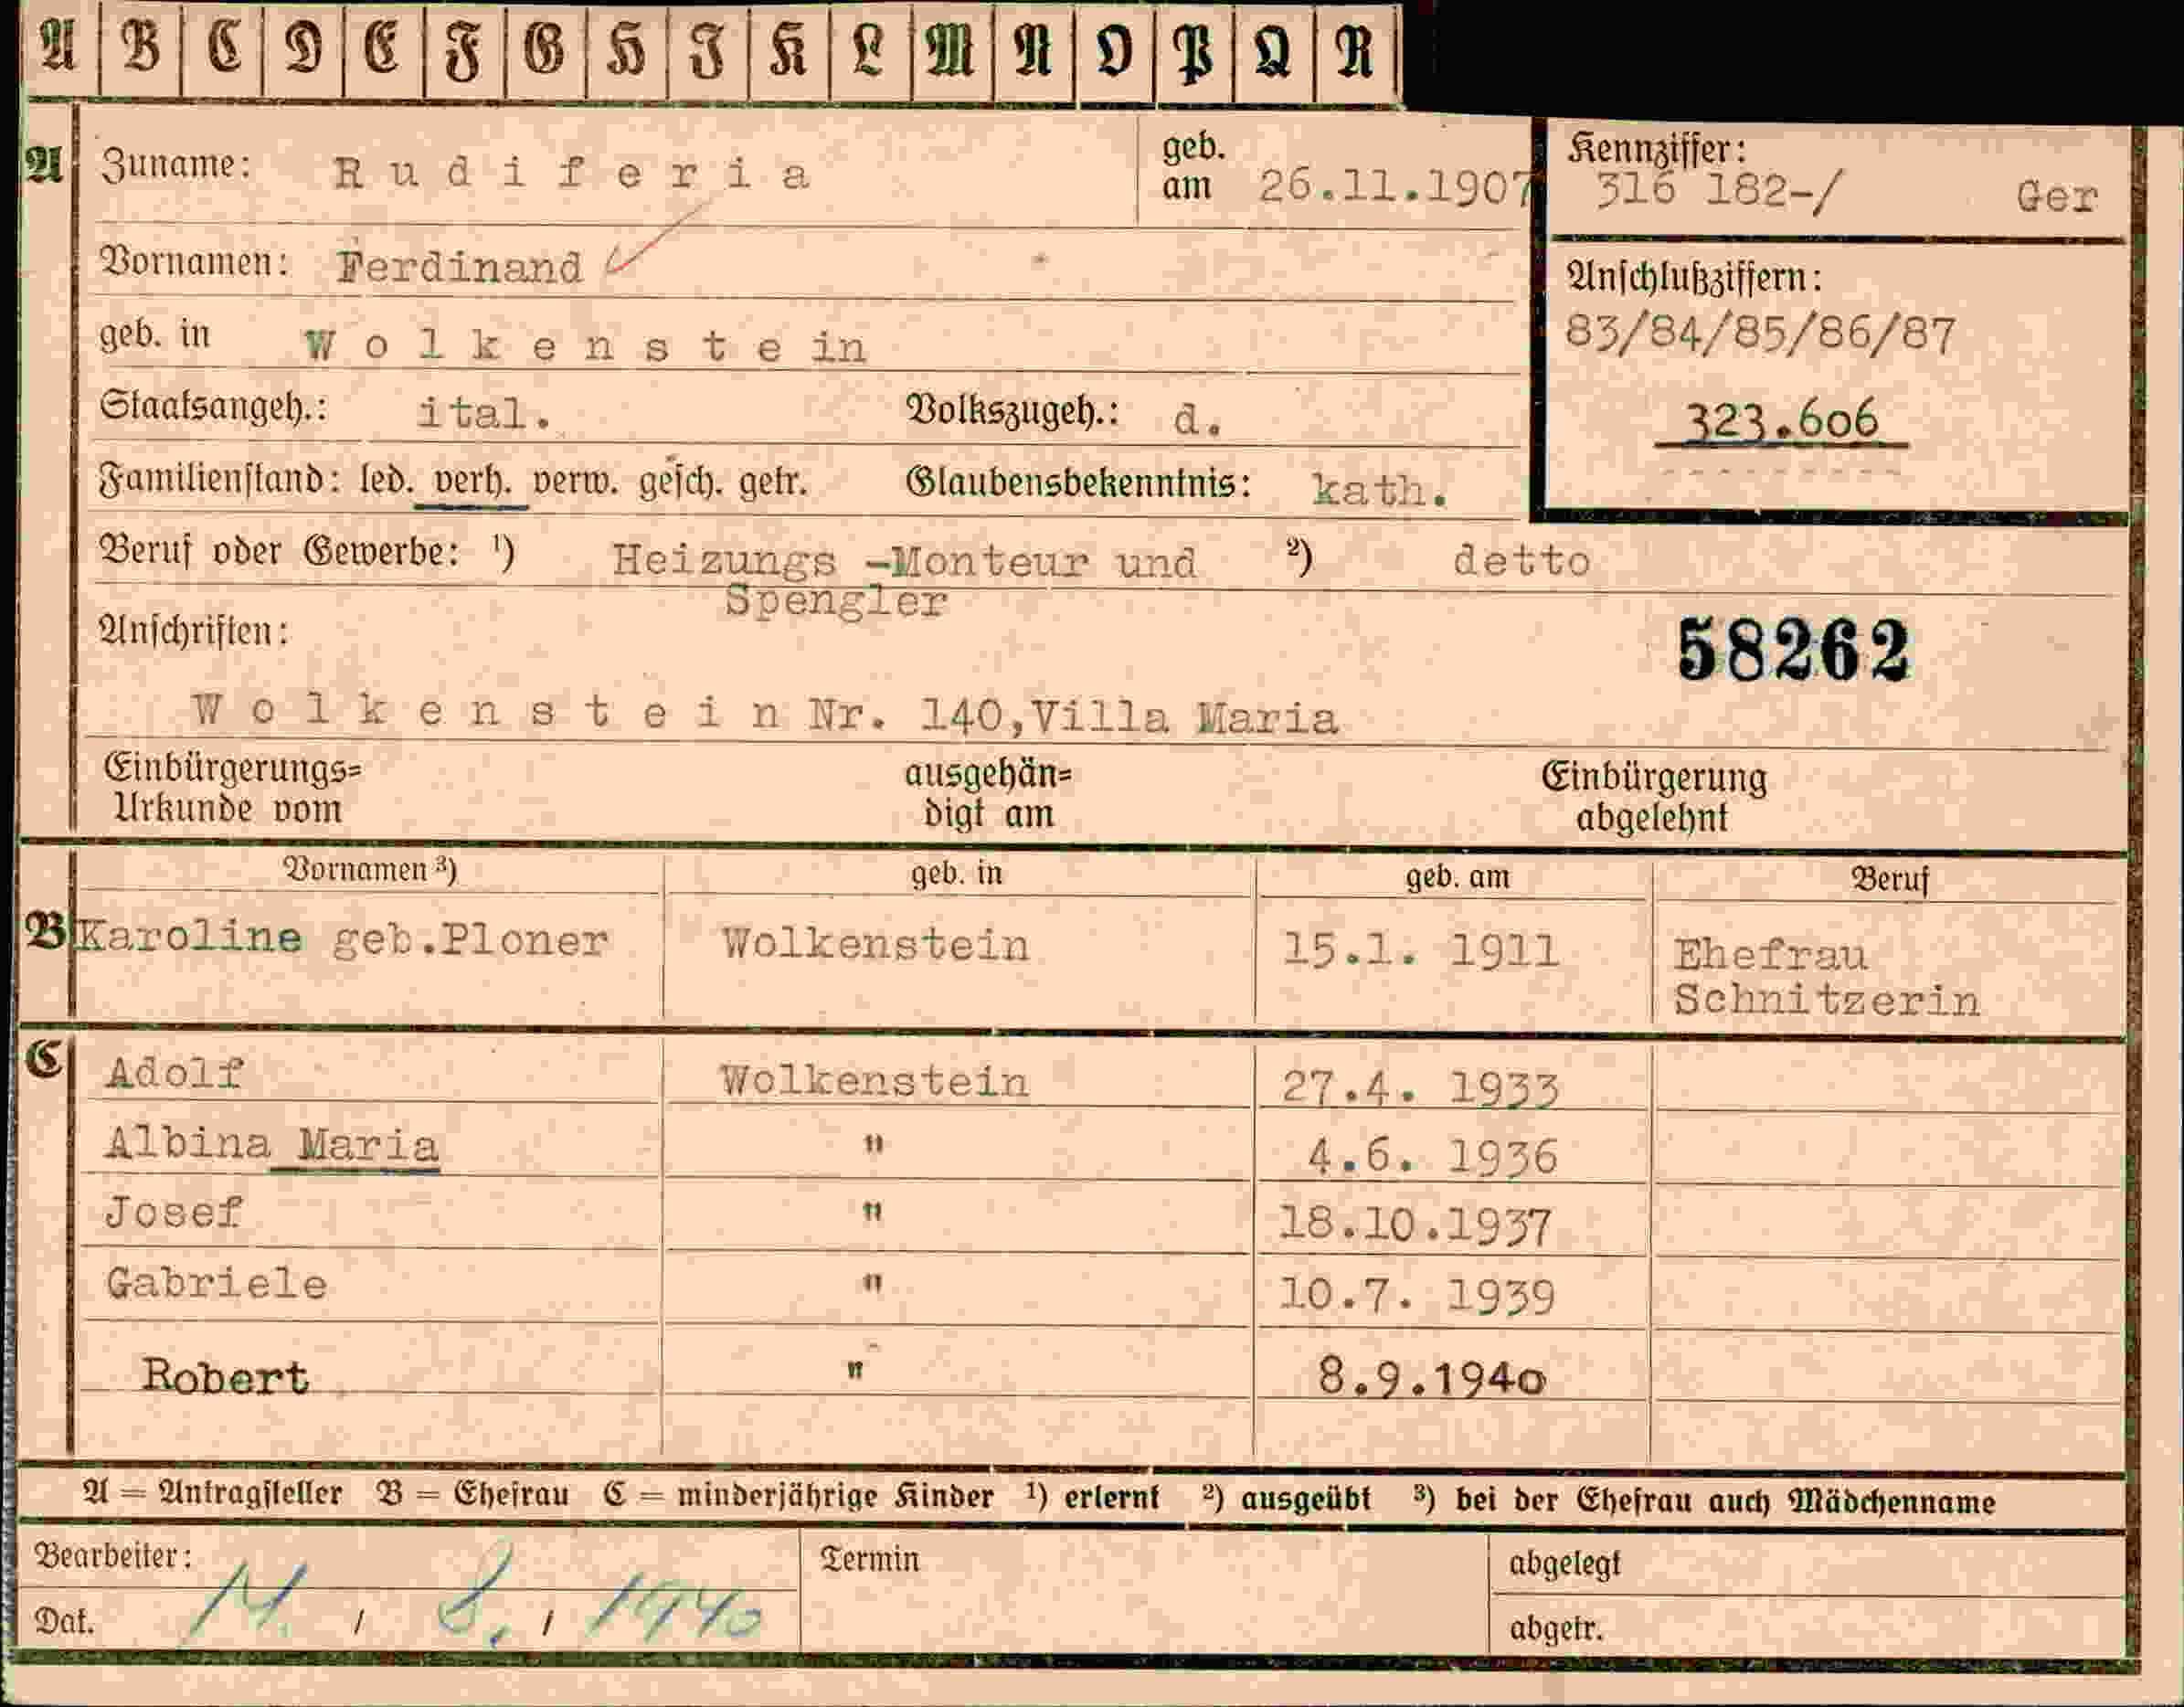 A B C D E F G H J K L M N O P Q R
A Zuname: Rudiferia geb. am 26.11.1907
Kennziffer: 316 182-/ Ger
Vornamen: Ferdinand
Anschlußziffern:
83/84/85/86/87
323.606
geb. in Wolkenstein
Staatsangeh.: ital. Volkszugeh.: d.
Familienstand: led. verh. verw. gesch. getr. Glaubensbekenntnis: kath.
Beruf oder Gewerbe: ¹) Heizungs -Monteur und ²) detto
Spengler
Anschriften:
58262
Wolkenstein Nr. 140,Villa Maria
Einbürgerungs= ausgehän= Einbürgerung
Urkunde vom digt am abgelehnt
Vornamen ³) geb. in geb. am Beruf
B Karoline geb.Ploner Wolkenstein 15.1. 1911 Ehefrau
Schnitzerin
C Adolf Wolkenstein 27.4. 1933
Albina Maria " 4.6. 1936
Josef " 18.10.1937
Gabriele " 10.7. 1939
Robert " 8.9.1940
A = Antragsteller B = Ehefrau C = minderjährige Kinder ¹) erlernt ²) ausgeübt ³) bei der Ehefrau auch Mädchenname
Bearbeiter: Termin abgelegt
Dat. / 8. / 1940 abgetr.